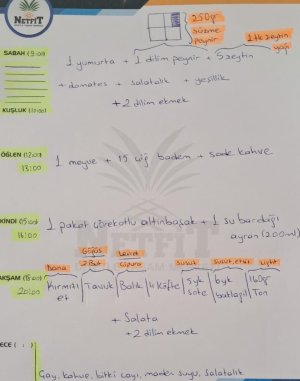 NETFİT
250g
süzme
peynir
1 tk zeytin
yağı
SABAH (9:00)
1 yumurta + 1 dilim peynir + 5 zeytin
+ domates + salatalık + yeşillik
+ 2 dilim ekmek
KUŞLUK (10:00)
ÖĞLEN (12:00)
13:00
1 meyve + 15 çiğ badem + sade kahve
KİNDİ (15:00)
16:00
1 paket çörekotlu altınbaşak + 1 su bardağı
ayran (200ml)
NETFİT
Göğüs
2 But
Levrek
Çipura
Dana
Susuz
Susuz, etsiz
Light
AKŞAM (18:00)
20:00
Kırmızı
et
Tavuk
Balık
4 Köfte
5yk
sote
6yk
patlıcan
160gr
Ton
+ Salata
+ 2 dilim ekmek
ECE ( : )
Çay, kahve, bitki çayı, maden suyu, salatalık